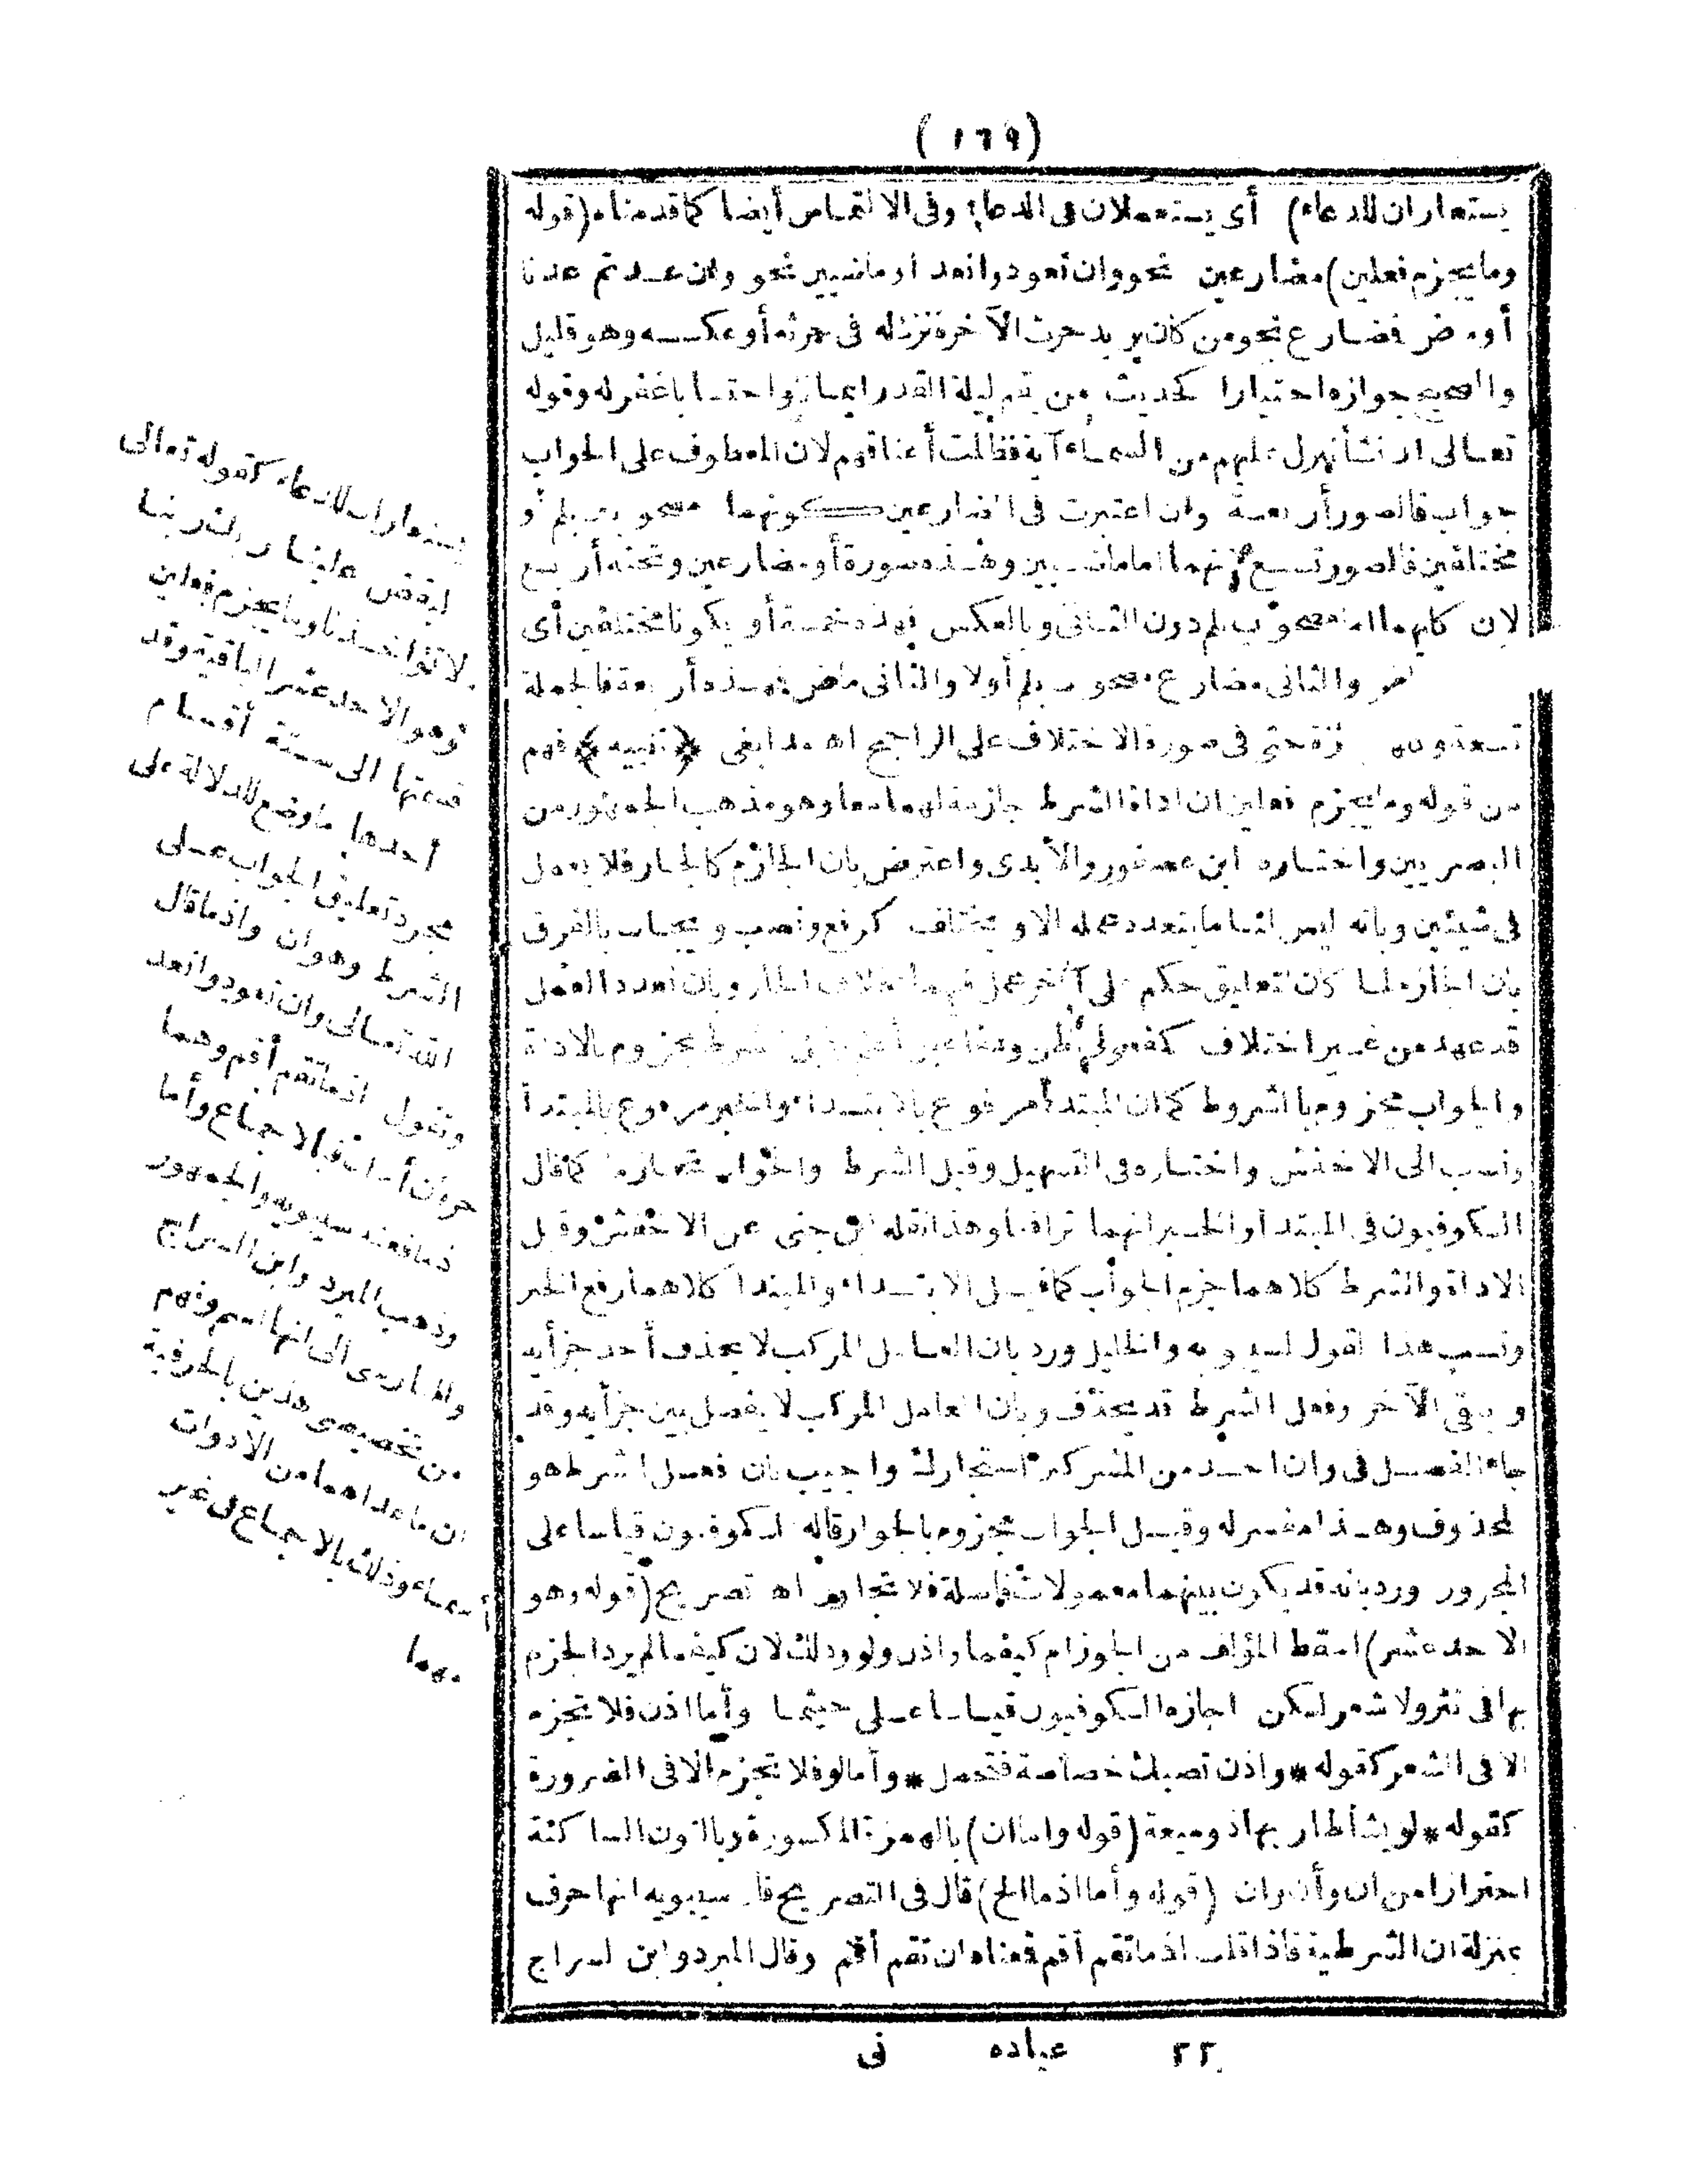 (١٦٩)
يستعاران للدعاء) أى يستعملان فى الدعاء وفى الالتماس أيضا كما قدمناه (قوله
وما يجزم فعلين) مضارعين نحو وان تعودوا نعد أو ماضيين نحو وان عدتم عدنا
أو ماض فضارع نحو من كان يريد حرث الآخرة نزد له فى حرثه أو عكسه وهو قليل
والصحيح جوازه اختيارا كحديث من يقم ليلة القدر ايمانا واحتسابا غفر له وقوله
تعالى ان نشأ ننزل عليهم من السماء آية فظلت أعناقهم لان المعطوف على الجواب
جواب فالصور أربعة وان اعتبرت فى المضارعين كونهما مصحوبين بلم أو
مختلفين فالصور تسع لانهما اما ماضيين وهذه صورة أو مضارعين وتحته أربع
لان كليهما اما مصحوب بلم دون الثانى وبالعكس فهذه خمسة أو يكونا مختلفين أى
والثانى مضارع مصحوب بلم أولا والثانى ماض فهذه أربعة فالجملة
تسعة حتى فى صورة الاختلاف على الراجح اه مدابغى ﴿تنبيه﴾ فهم
من قوله وما يجزم فعلين ان اداة الشرط جازمة لهما معا وهو مذهب الجمهور من
البصريين واختاره ابن عصفور والأبدى واعترض بان الجازم كالجار فلا يعمل
فى شيئين وبانه ليس لنا ما يتعدد عمله الا ويختلف كرفع ونصب ويجاب بالفرق
بان الجازم لما كان لتعليق حكم على آخر عمل فيهما بخلاف الجار وبان تعدد العمل
قد عهد من غير اختلاف كمفعولى ظن ومفاعيل أعلم وقيل الشرط مجزوم بالاداة
والجواب مجزوم بالشروط كما ان المبتدأ مرفوع بالابتداء والخبر مرفوع بالمبتدأ
ونسب الى الاخفش واختاره فى التسهيل وقيل الشرط والجواب تجازما كما قال
الكوفيون فى المبتدا والخبر انهما ترافعا وهذا نقله ابن جنى عن الاخفش وقيل
الاداة والشرط كلاهما جزم الجواب كما قيل الابتداء والمبتدا كلاهما رفع الخبر
ونسب هذا القول لسيبويه والخليل ورد بان العامل المركب لا يحذف أحد جزأيه
ويبقى الآخر وفعل الشرط قد يحذف وبان العامل المركب لا يفصل بين جزأيه وقد
جاء الفصل فى وان احد من المشركين استجارك واجيب بان فعل الشرط هو
المحذوف وهذا مفسر له وقيل الجواب مجزوم بالجوار قاله الكوفيون قياسا على
المجرور ورد بانه قد يكون بينهما معمولات فاصلة فلا تجاور اه تصريح (قوله وهو
الاحد عشر) اسقط المؤلف من الجوازم كيفما واذن ولو وذلك لان كيفما لم يرد الجزم
بها فى نثر ولا شعر لكن اجازه الكوفيون قياسا على حيثما وأما اذن فلا تجزم
الا فى الشعر كقوله * واذن تصبك خصاصة فتحمل * وأما لو فلا تجزم الا فى الضرورة
كقوله * لو يشأ طار بها ذو ميعة (قوله واما ان) بالهمزة المكسورة وبالنون الساكنة
احترازا من ان وأن وان (قوله وأما اذما الخ) قال فى التصريح قال سيبويه انها حرف
بمنزلة ان الشرطية فاذا قلت اذما تقم أقم فمعناه ان تقم أقم وقال المبرد وابن السراج
٢٢ عباده نى
يستعاران للدعاء كقوله تعالى
ليقض علينا ربك ربنا
لا تؤاخذنا وما يجزم فعلين
وهو الاحد عشر الباقية وقد
قسمتها الى ستة أقسام
أحدها ما وضع للدلالة على
مجرد تعليق الجواب على
الشرط وهو ان واذما قال
الله تعالى وان تعودوا نعد
وتقول اذما تقم أقم وهما
حرفان أما ان فبالاجماع وأما
اذما فعند سيبويه والجمهور
وذهب المبرد وابن السراج
والفارسى الى انها اسم وفهم
من تخصيصى هذين بالحرفية
ان ما عداهما من الادوات
أسماء وذلك بالاجماع فى غير
مهما